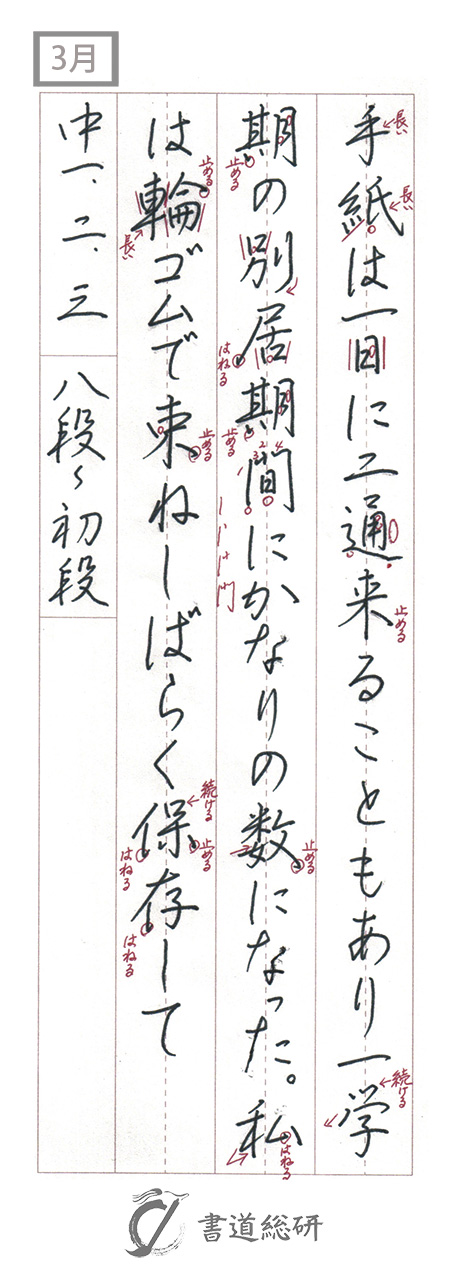 3月
手紙は一日に二通来ることもあり一学
期の別居期間にかなりの数になった。私
は輪ゴムで束ねしばらく保存して
中一、二、三
八段〜初段
長い
長い
止める
続ける
止める
はねる
止める
止める
はねる
止める
長い
止める
続ける
止める
はねる
はねる
書道総研